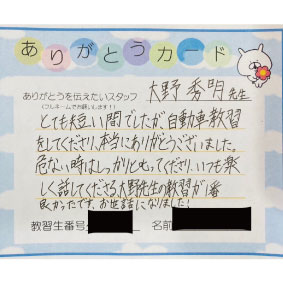 ありがとうカード
ありがとうを伝えたいスタッフ 大野 秀明 先生
(フルネームでお願いします!!)
とても短い間でしたが自動車教習
をしてくださり、本当にありがとうございました。
危ない時はしっかりと言ってくださり、いつも楽
しく話してくださる大野先生の教習が1番
良かったです。お世話になりました!
教習生番号 名前